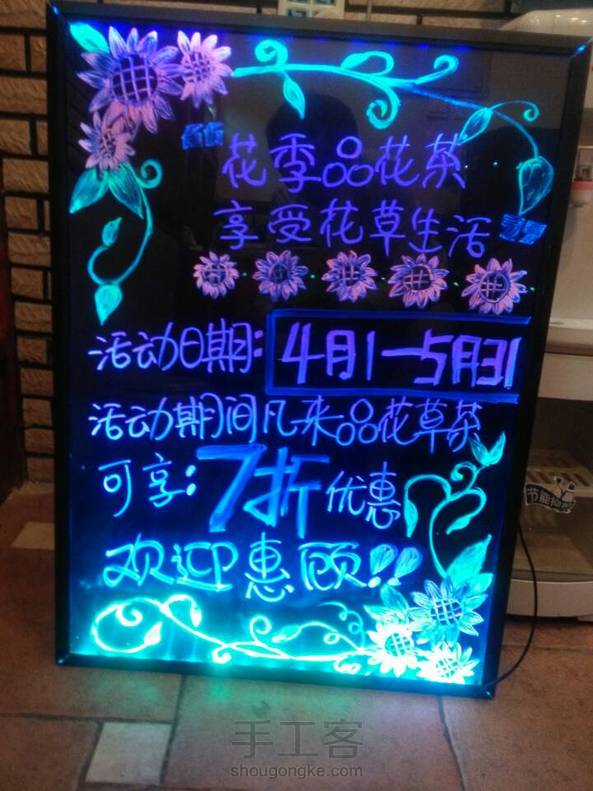 “花季品花茶
享受花草生活”
活动日期: 4月1—5月31
活动期间凡来品花草茶
可享: 7折优惠
欢迎惠顾!!
手工客
shougongke.com